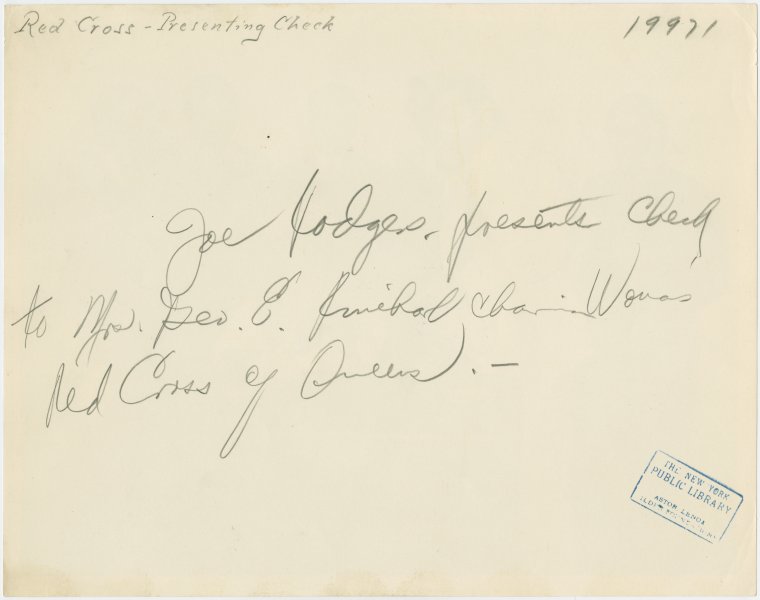 Red Cross - Presenting Check
19971
Joe Hodges. presents Check
to Mrs. Geo. E. Woman's
Red Cross of Queens. —
THE NEW YORK
PUBLIC LIBRARY
ASTOR LENOX